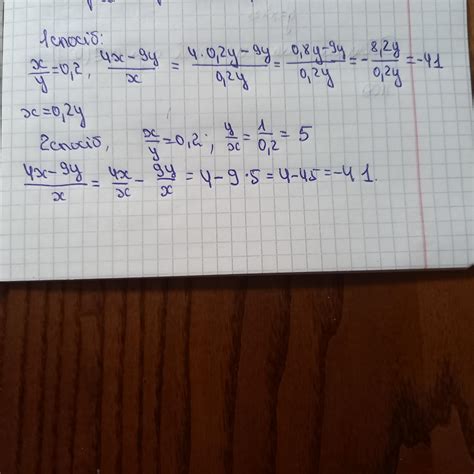 1 спосіб:
x/y = 0,2, (4x-9y)/x = (4·0,2y-9y)/0,2y = (0,8y-9y)/0,2y = -8,2y/0,2y = -41
x = 0,2y
2 спосіб, x/y = 0,2; y/x = 1/0,2 = 5
(4x-9y)/x = 4x/x - 9y/x = 4-9·5 = 4-45 = -41.